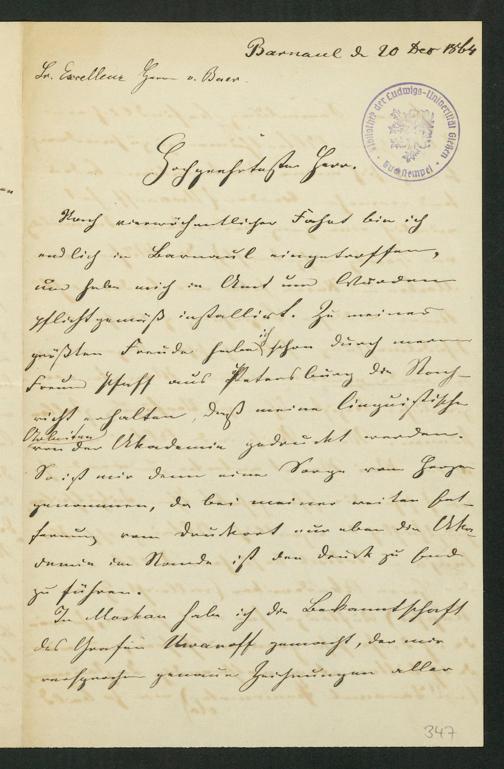 Barnaul d. 20 Dec 1864
Sr. Excellenz Herrn v. Baer.
Bibliothek der Ludwigs-Universität Gießen
Buchstempel
Hochgeehrtester Herr.
Nach vierwöchentlicher Fahrt bin ich
endlich in Barnaul eingetroffen,
und habe mich in Amt und Würden
pflichtgemäß installirt. Zu meiner
größten Freude habe ich schon durch meinen
Freund Schiff aus Petersburg die Nach-
richt erhalten, daß meine linguistische
Arbeiten
von der Akademie gedruckt werden.
So ist mir denn eine Sorge vom Herzen
genommen, da bei meiner weiten Ent-
fernung vom Druckort nur eben die Aka-
demie im Stande ist den Druck zu Ende
zu führen.
In Moskau habe ich die Bekanntschaft
des Grafen Uwaroff gemacht, der mir
versprochen genaue Zeichnungen aller
347